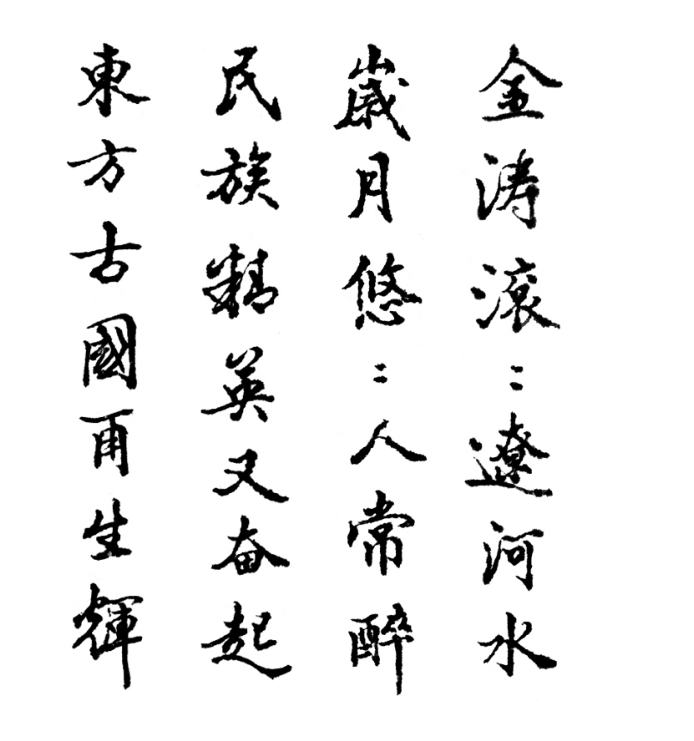 金涛滚〻遼河水
歲月悠〻人常醉
民族精英又奋起
東方古國再生輝